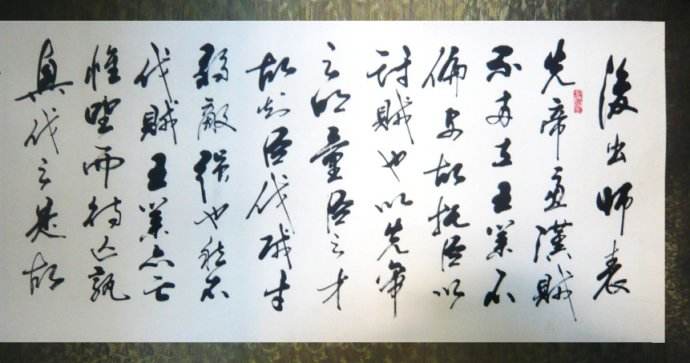 後出師表
先帝慮漢賊
不兩立王業不
偏安故托臣以
討賊也以先帝
之明量臣之才
故知臣伐賊才
弱敵强也然不
伐賊王業亦亡
惟坐而待亡孰
與伐之是故